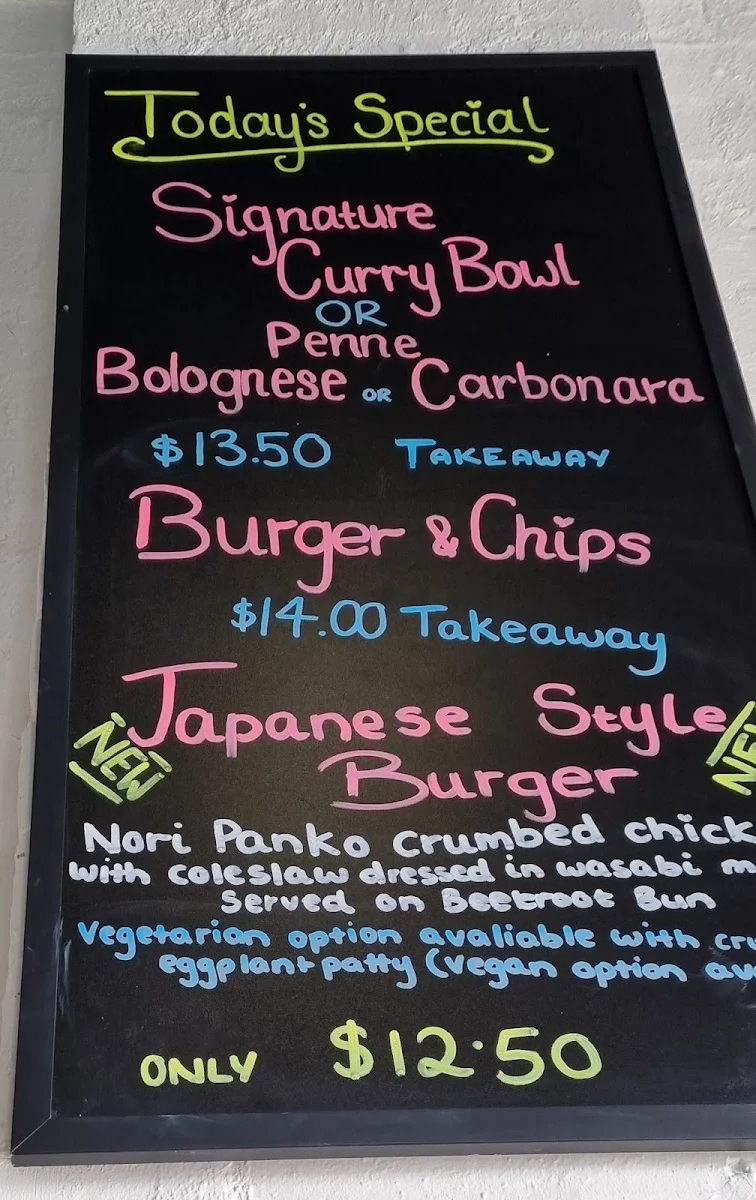 Today's Special
Signature
Curry Bowl
OR
Penne
Bolognese OR Carbonara
$13.50 TAKEAWAY
Burger & Chips
$14.00 Takeaway
Japanese Style
NEW Burger
Nori Panko crumbed
with coleslaw dressed in wasabi
Served on Beetroot Bun
Vegetarian option avaliable with
eggplant patty (vegan option
ONLY $12.50